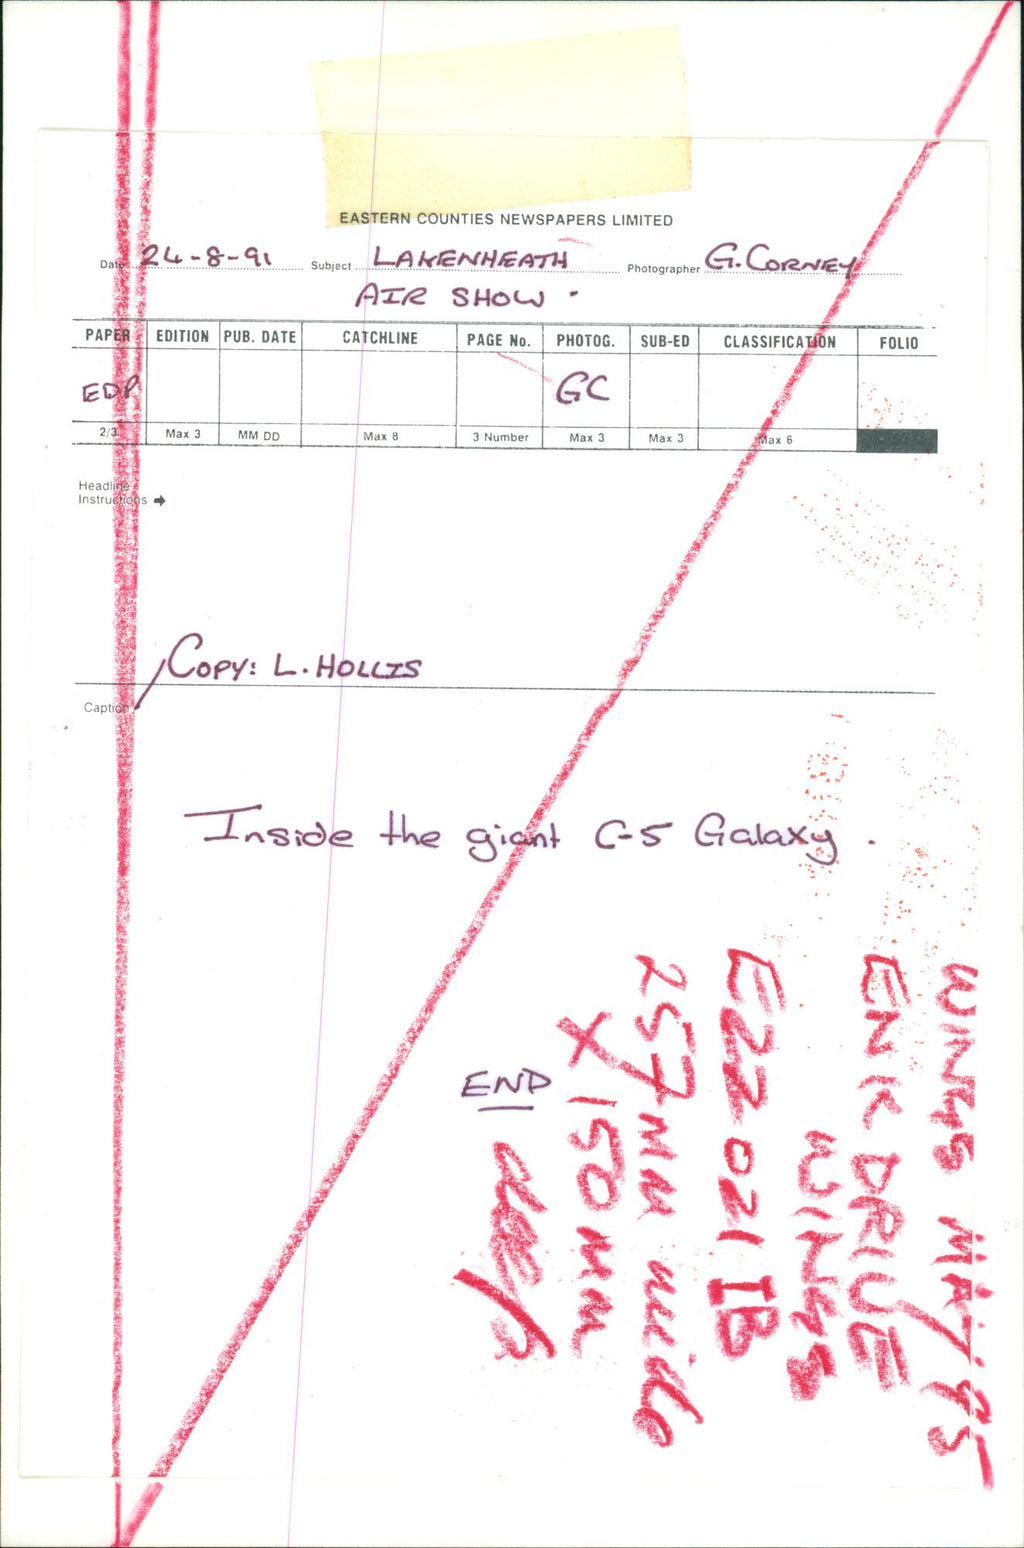 EASTERN COUNTIES NEWSPAPERS LIMITED
Date 24-8-91 Subject LAKENHEATH Photographer G. CORNEY
AIR SHOW.
PAPER EDITION PUB. DATE CATCHLINE PAGE No. PHOTOG. SUB-ED CLASSIFICATION FOLIO
EDP GC
2/3 Max 3 MM DD Max 8 3 Number Max 3 Max 3 Max 6
Headline
Instructions
COPY: L. HOLLIS
Caption
Inside the giant C-5 Galaxy.
END
WINGS MAY. 95
DRIVE
WINGS
EZZ 021 IB
257mm wide
X 150mm
deep